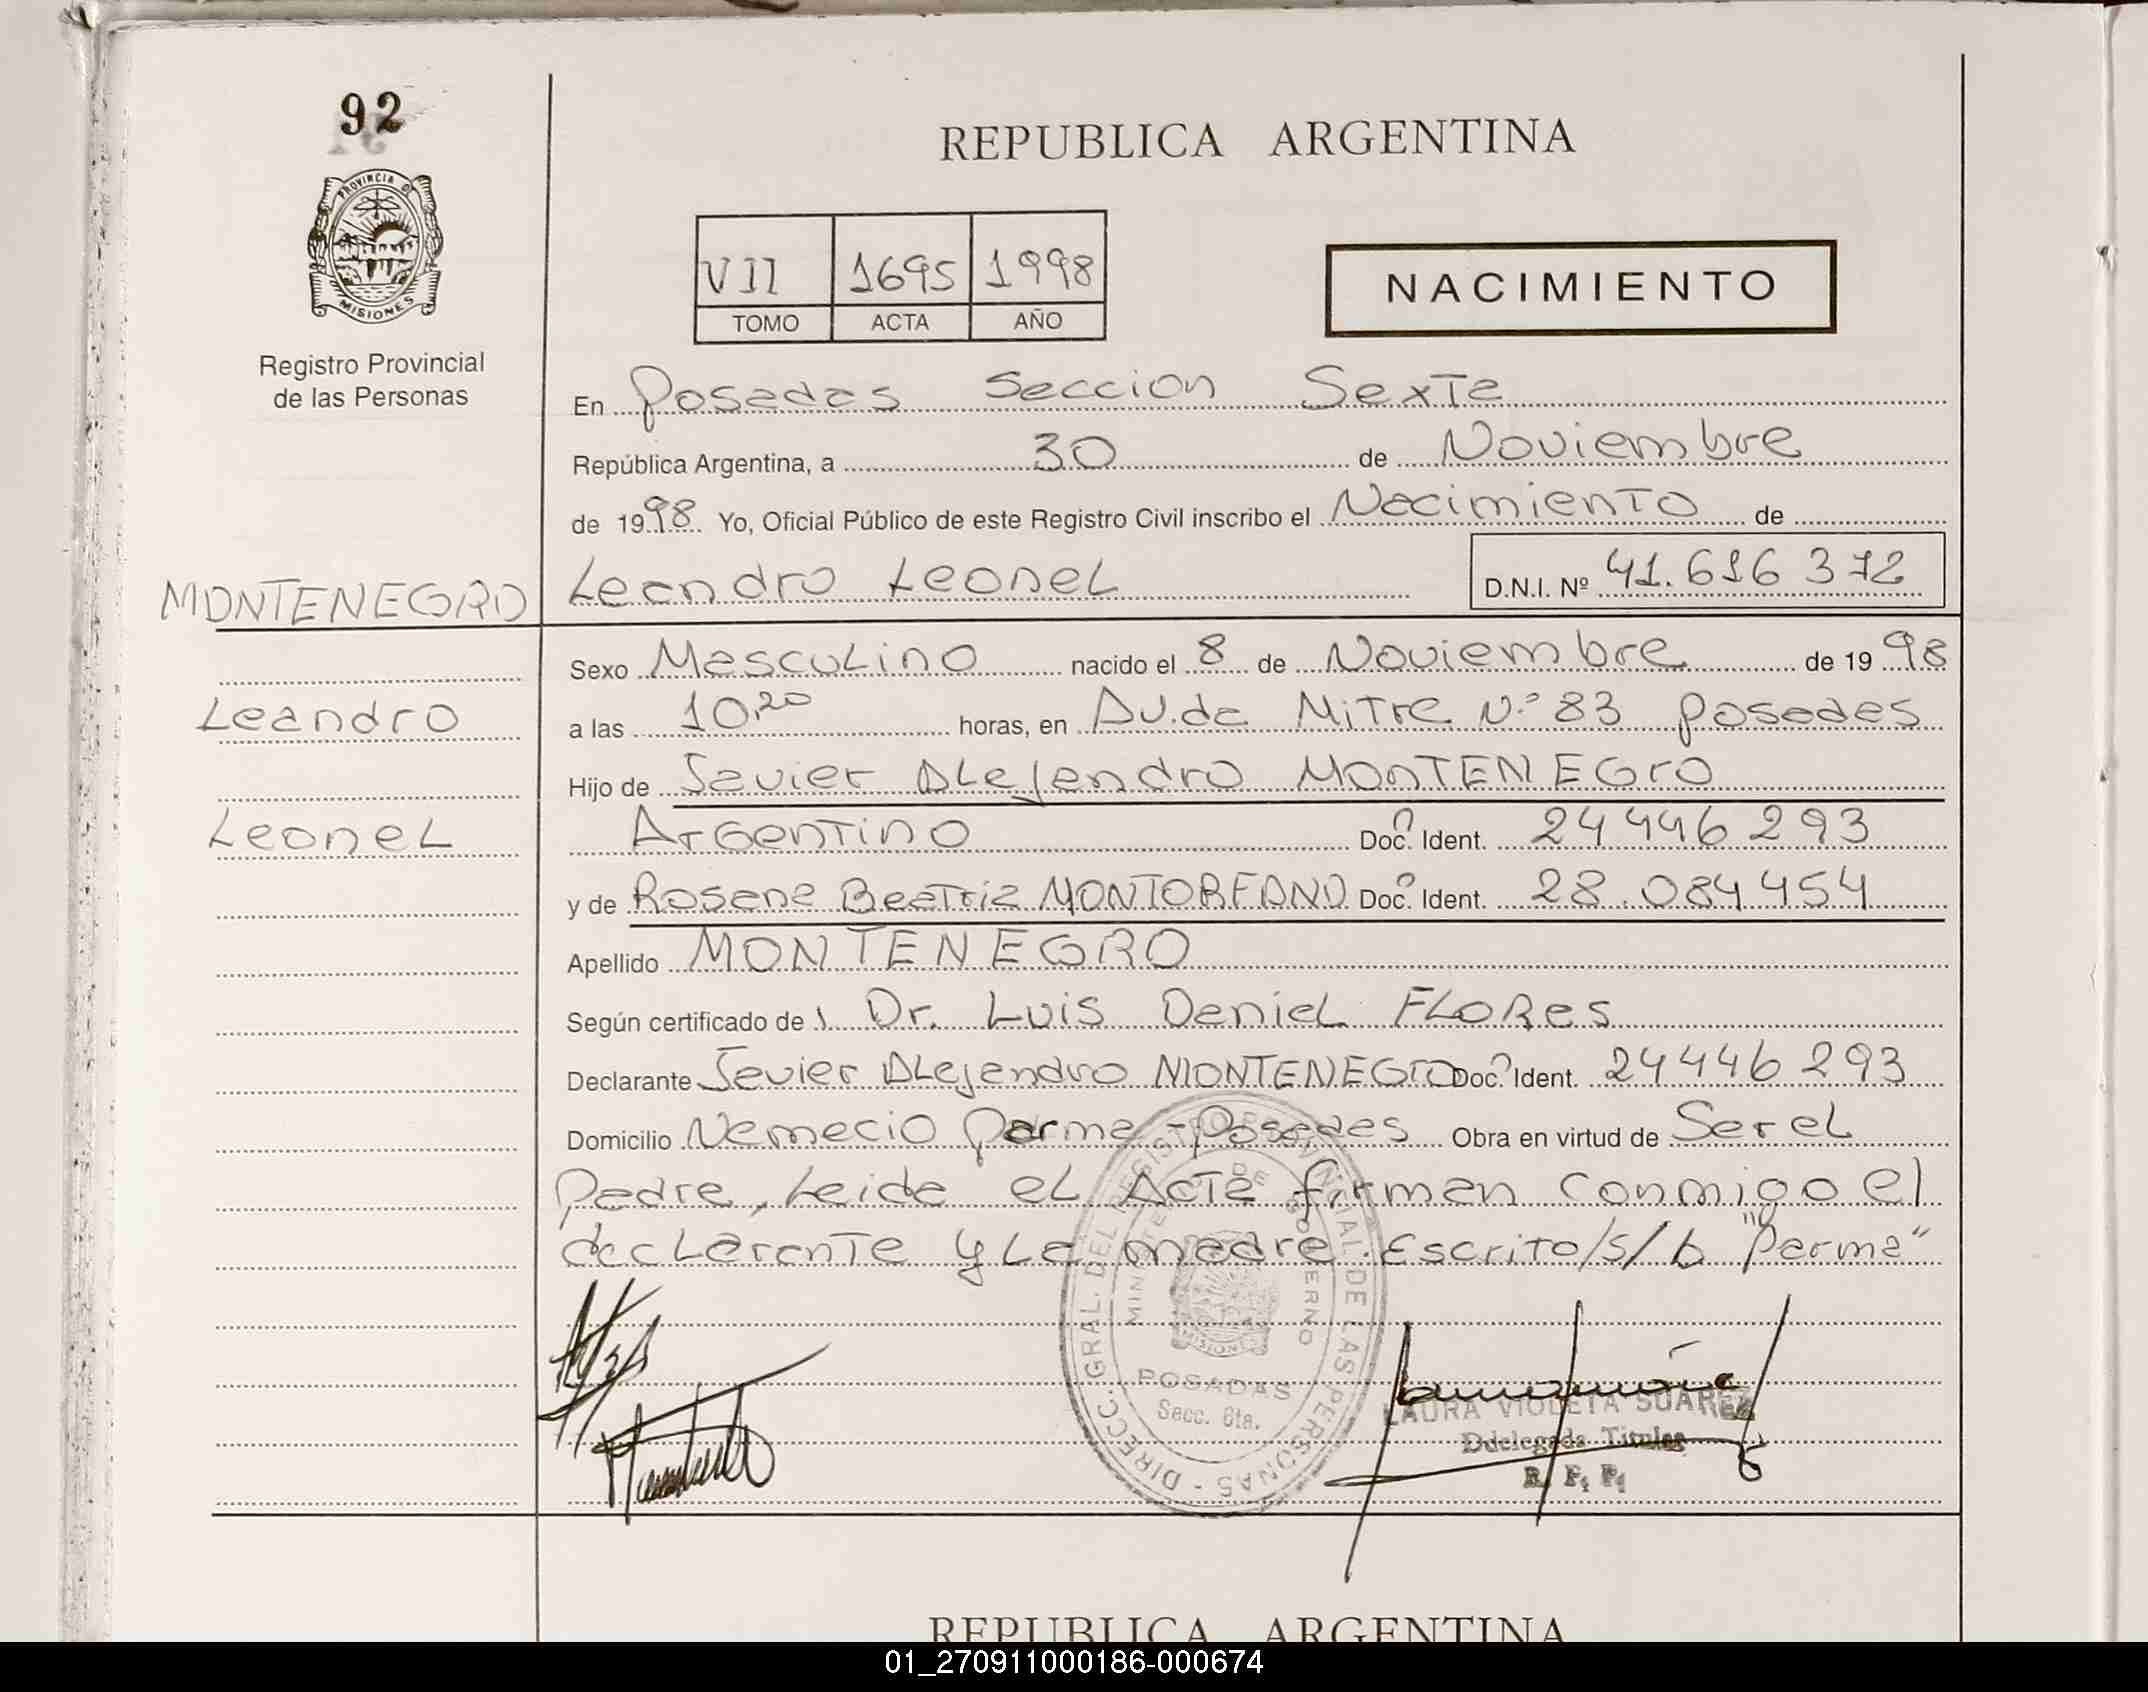 92
PROVINCIA DE
MISIONES
Registro Provincial
de las Personas
REPUBLICA ARGENTINA
VII 1695 1998
TOMO ACTA AÑO
NACIMIENTO
En Posadas Seccion Sexta
República Argentina, a 30 de Noviembre
de 1998 Yo, Oficial Público de este Registro Civil inscribo el Nacimiento de
MONTENEGRO Leandro Leonel D.N.I. Nº 41.616 372
Sexo Masculino nacido el 8 de Noviembre de 1998
Leandro a las 10,20 horas, en Av.da Mitre N.º 83 Posadas
Hijo de Javier Alejandro MONTENEGRO
Leonel Argentino Doc. Ident. 24 446 293
y de Rosana Beatriz MONTOREANO Doc. Ident. 28.084 454
Apellido MONTENEGRO
Según certificado de Dr. Luis Daniel FLORES
Declarante Javier Alejandro MONTENEGRO Doc. Ident. 24446 293
Domicilio Nemecio Parma - Posadas Obra en virtud de Ser el
padre, Leida el Acta firman conmigo el
declarante y La madre. Escrito/s/b "Parma"
DIRECC. GRAL. DEL REGISTRO PROVINCIAL DE LAS PERSONAS
MINISTERIO DE GOBIERNO
MISIONES
POSADAS
Secc. 6ta.
LAURA VIOLETA SUAREZ
Ddelegada Titular
R. P. P.
REPUBLICA ARGENTINA
01_270911000186-000674